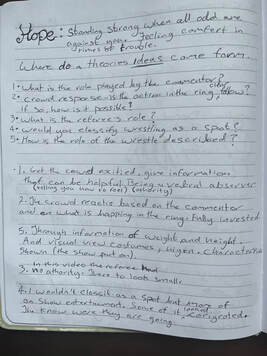 Hope: Standing strong when all odd are
against you. Feeling comfort in
times of trouble.
Where do a theories Ideas come form.
1• What is the role played by the commentor?
2• Crowd response - is the action in the ring,
If so, how is it possible?
3• What is the referee's role?
4• Would you classify wrestling as a spot?
5• How is the role of the wrestle described?
1. Get the cowd exitied, give information
that can be helpful. Being a verbal observer
(telling you how to feel) (Authority)
2. The crowd reactie based on the commentor
and on what is happening in the ring. Fully invested
5. Through information of weight and height.
And visual view costumes, Charactoris
Shown (the show put on).
In this video the referee had
3. no athority. There to look small.
4. I wouldn't classit as a spot but more of
an show entertainment. Some of it looked
You know were they are going.